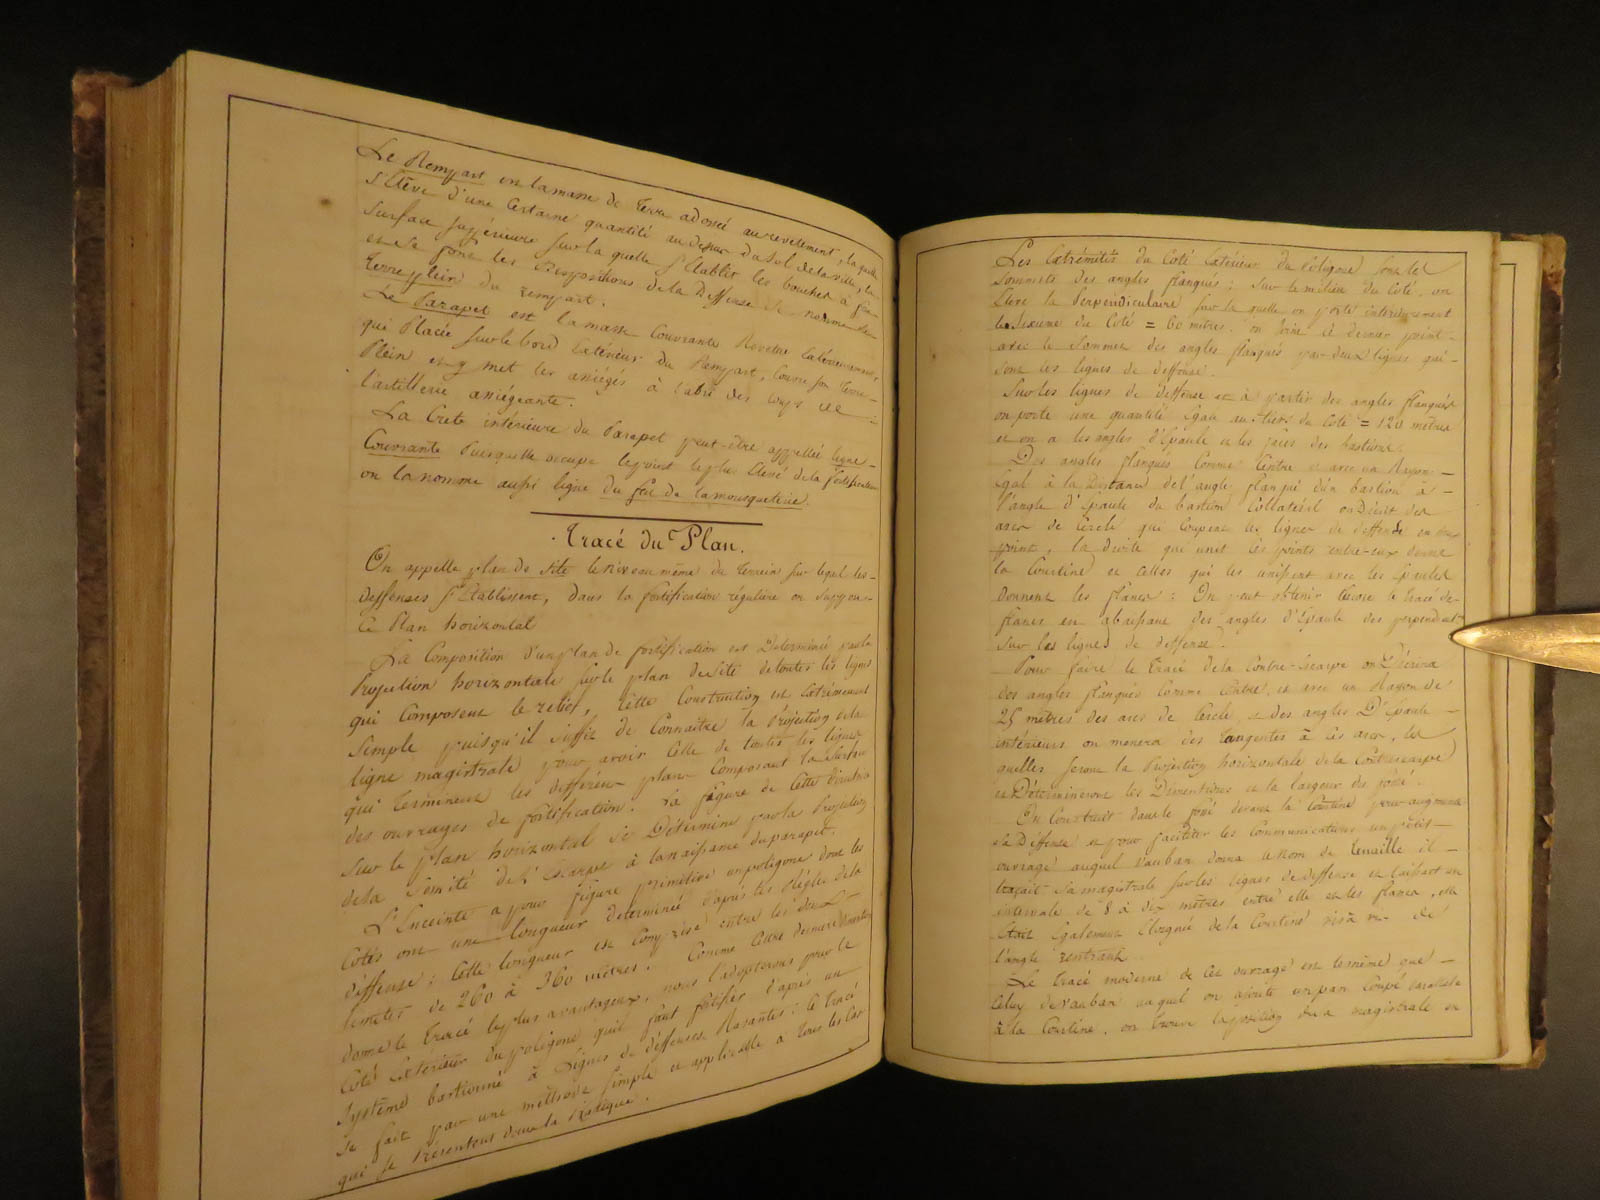 Le Rempart est la masse de Terre adossée au revêtement, la quelle
s'Elève d'une Certaine quantité au dessus du Sol de la ville, la
surface supérieure sur la quelle s'Etablit les bouches à feu
et se font les Dispositions de la Deffense se nomme le
Terreplein du rempart.
Le Parapet est la masse Couvrante Revetue Extérieurement,
qui Placée sur le bord Extérieur du Rempart, Couvre son Terre-
Plein et y met les assiégés à l'abri des Coups de
l'artillerie assiégeante.
La Crete intérieure du Parapet peut-être appellée ligne
Couvrante Puisqu'elle occupe le point le plus Elevé de la fortification
on la nomme aussi ligne du feu de la mousqueterie.
Tracé du Plan.
On appelle plan de Site le niveau même du Terrein sur lequel les
deffenses s'Etablissent, dans la fortification régulière on Suppose
Ce Plan horizontal
La Composition d'un plan de fortification est Déterminé par la
Projection horizontale sur le plan de Site de toutes les lignes
qui Composent le relief, Cette Construction est Extrémement
Simple puisqu'il suffit de Connaître la Projection de la
ligne magistrale pour avoir Celle de toutes les lignes
qui Terminent les différens plans Composant la Surface
des ouvrages de fortification. La figure de Cette directrice
sur le plan horizontal se Détermine par la Projection
de la Somité de l'Escarpe à la naissance du parapet.
L'Enceinte a pour figure primitive un poligone dont les
Cotés ont une longueur determinée d'après les Régles de la
déffense ; Cette longueur est Comprise entre les deux
limites de 260 à 360 mètres. Comme Cette derniere dimension
donne le Tracé le plus avantageux, nous l'adopterons pour le
Coté Extérieur du poligone qu'il faut fortifier d'après un
Système bastionné à Lignes de déffenses Rasantes : le Tracé
se fait par une méthode simple et applicable à Tous les Cas
qui se Présentent dans la Pratique.
Les Extrémités du Coté Extérieur du Poligone sont les
Sommets des angles flanqués ; Sur le milieu du Coté, on
Eleve la Perpendiculaire sur la quelle on porte intérieurement
le Sixieme du Coté = 60 mètres : on joint Ce dernier point
avec le Sommet des angles flanqués par deux lignes qui
sont les lignes de deffense.
Sur les lignes de deffense et à partir des angles flanqués
on porte une quantité Egale au tiers du Coté = 120 mètres
et on a les angles d'Epaule et les faces des bastions.
Des angles flanqués Comme Centre et avec un Rayon
Egal à la Distance de l'angle flanqué d'un bastion à
l'angle d'Epaule du bastion Collatéral on Décrit des
arcs de Cercle qui Coupent les lignes de deffense en un
point, la droite qui unit Ces points entre-eux donne
la Courtine et Celles qui les unissent avec les Epaules
donnent les flancs : On peut obtenir Encore le Tracé des
flancs en abaissant des angles d'Epaule des perpendicul.
sur les lignes de deffense.
Pour faire le Tracé de la Contre-Scarpe on Décrira
des angles flanqués Comme Centre, et avec un Rayon de
25 mètres des arcs de Cercle, et des angles d'Epaule
intérieurs on menera des Tangentes à Ces arcs, les
quelles seront la Projection horizontale de la Contrescarpe
et Détermineront les Dimentions et la largeur du fossé.
On Construit dans le fossé devant la Courtine pour augmenter
sa Déffense et pour faciliter les Communications un petit
ouvrage auquel Vauban donna le nom de Tenaille il
traçait sa magistrale sur les lignes de deffense en laissant un
intervale de 8 à dix mètres entre elle et les flancs, elle
Etait Egalement Eloignée de la Courtine vis à vis de
l'angle rentrant.
Le Tracé moderne de Cet ouvrage est le même que
Celuy de Vauban auquel on ajoute un pan Coupé parallele
à la Courtine, on trouve la position de sa magistrale en